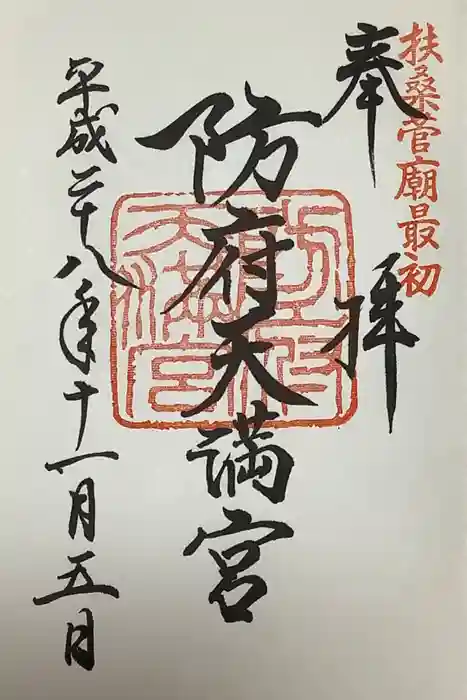 扶桑菅廟最初
奉拝
防府天満宮
防府天満宮
平成二十八年十一月五日